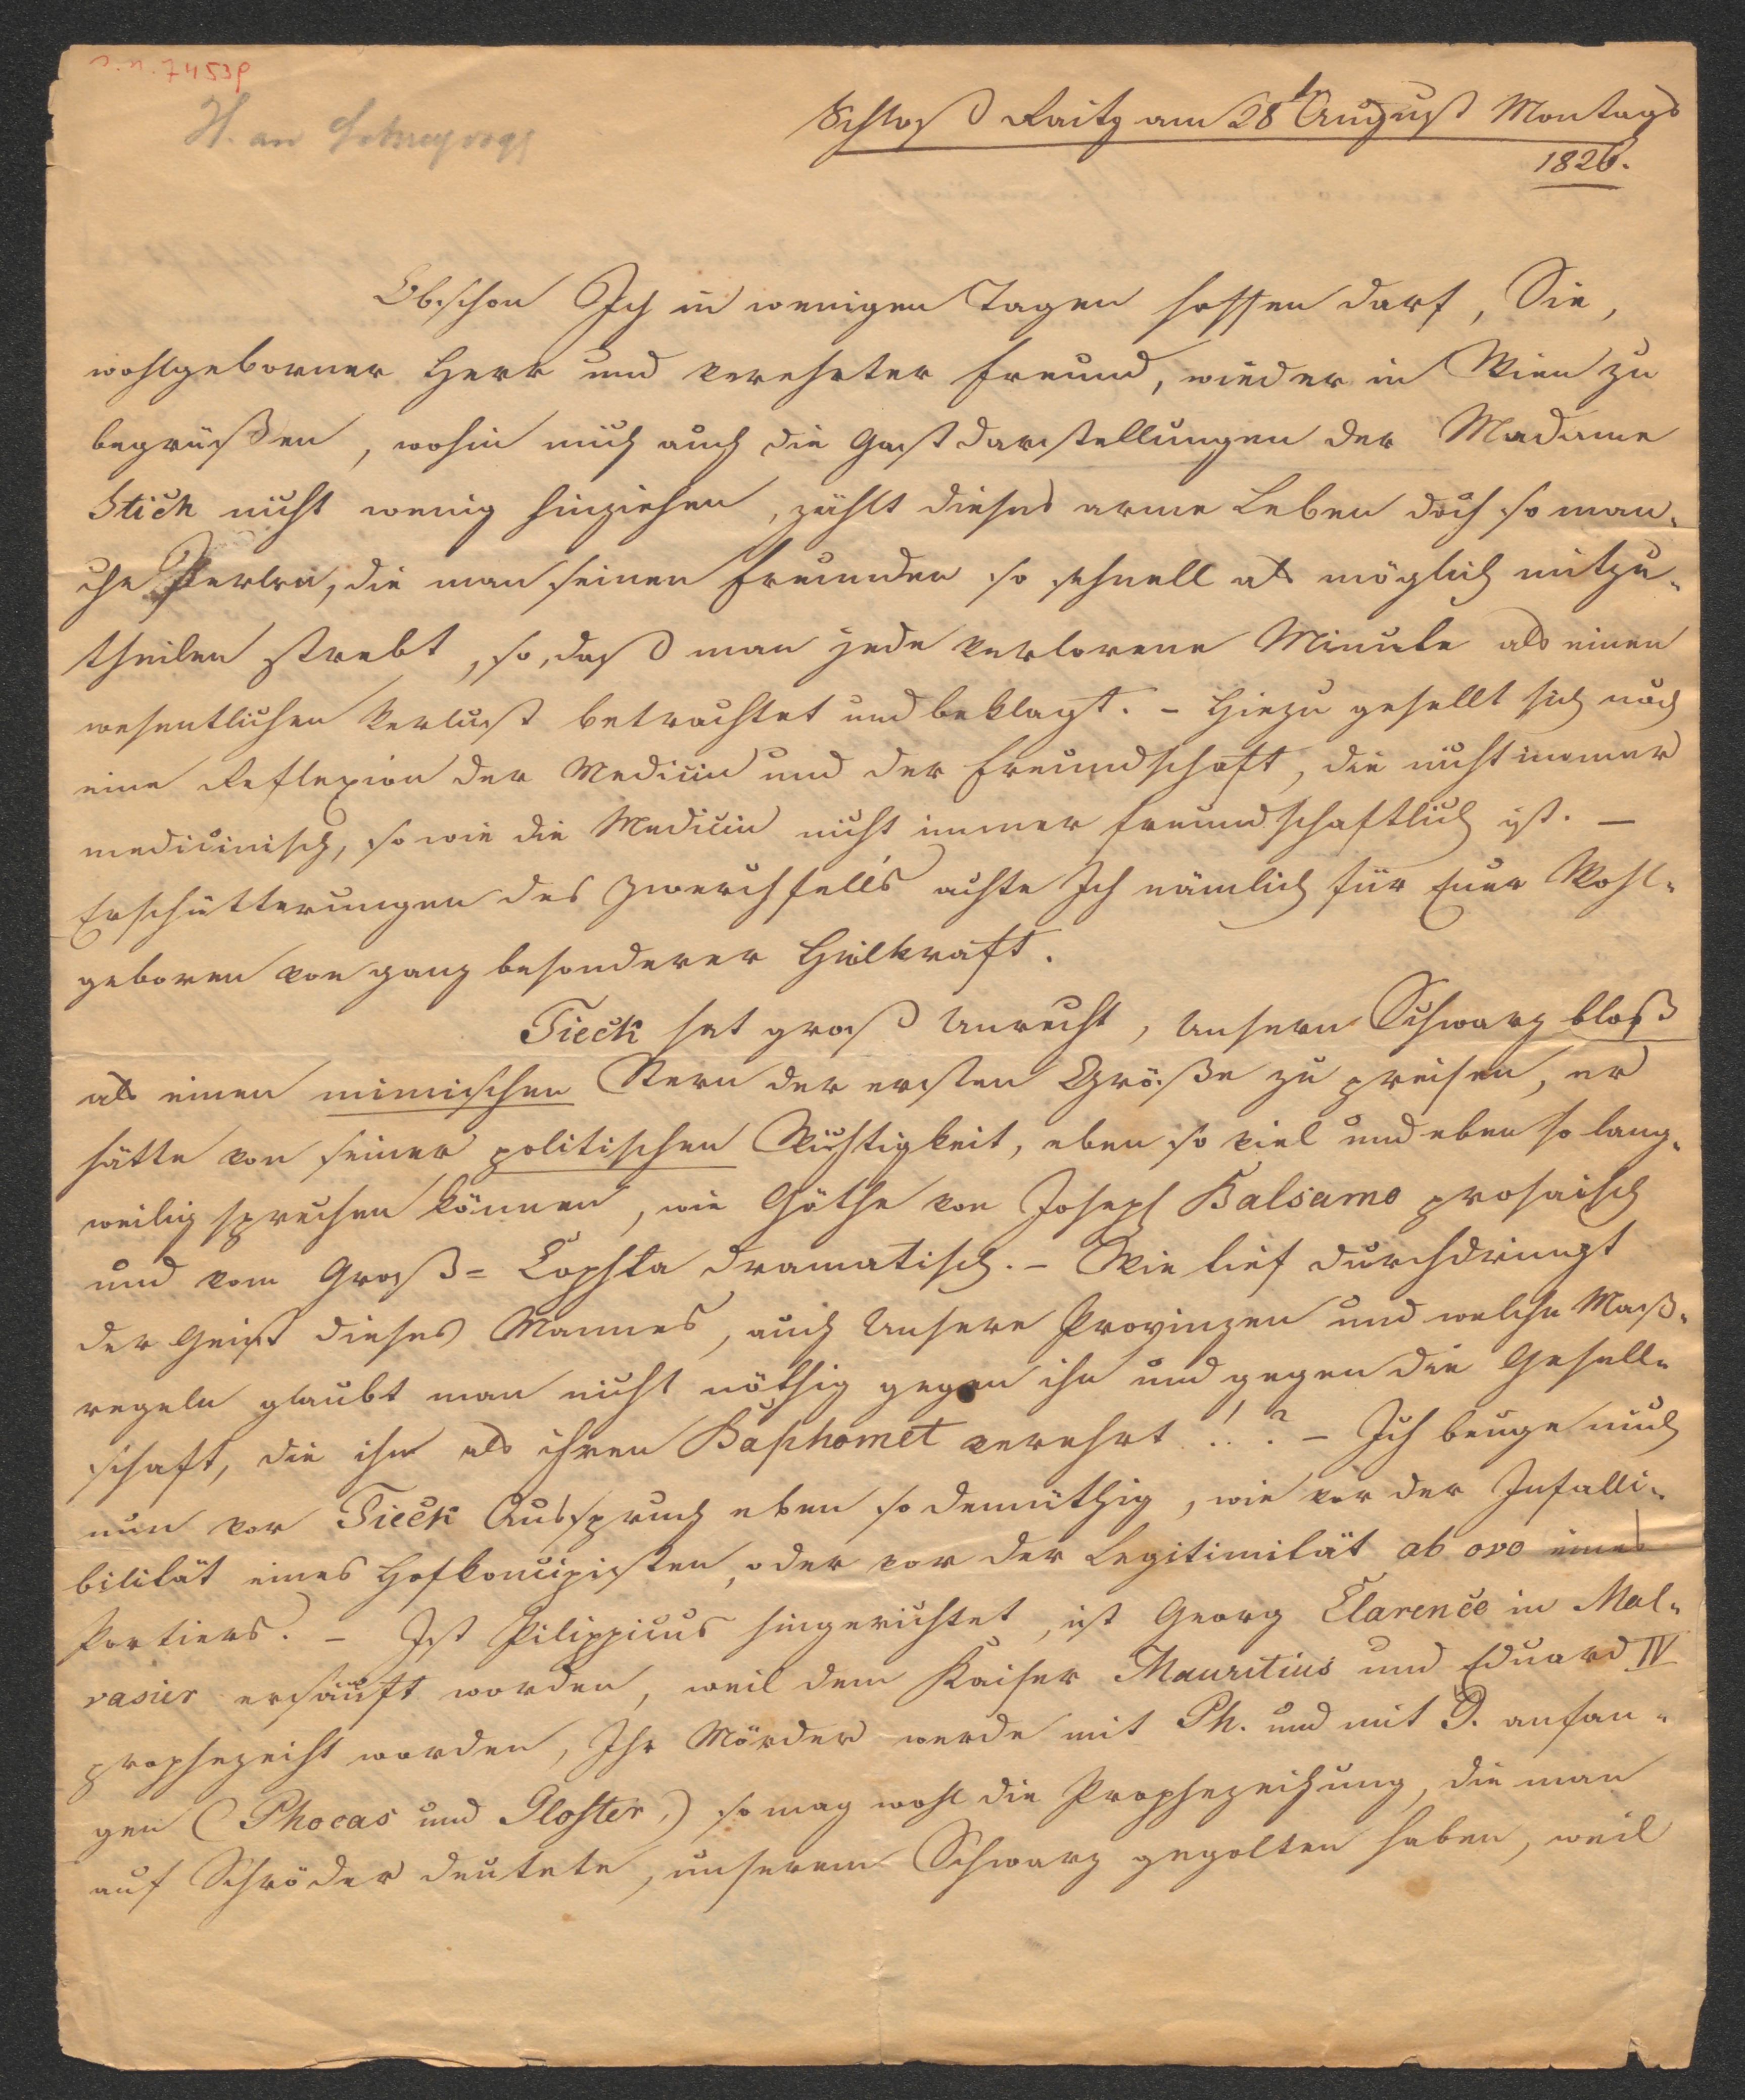 I.N. 74539
H. an Schreyvogl
Schloß Raitz am 28t August Montags
1826.
Obschon Ich in wenigen Tagen hoffen darf, Sie,
wohlgeborner Herr und verehrter Freund, wieder in Wien zu
begrüßen, wohin mich auch die Gastdarstellungen der Madame
Stich nicht wenig hinziehen, zählt dieses arme Leben doch so man-
che Perlen, die man seinen Freunden so schnell als möglich mitzu-
theilen strebt, so, daß man jede verlorene Minute als einen
wesentlichen Verlust betrachtet und beklagt. – Hiezu gesellt sich noch
eine Reflexion der Medicin und der Freundschaft, die nicht immer
medicinisch, so wie die Medicin nicht immer freundschaftlich ist. –
Erschütterungen des Zwerchfell's achte Ich nämlich für Euer Wohl-
geboren von ganz besonderer Heilkraft.
Tieck hat groß Unrecht, Unsern Schwarz bloß
als einen mimischen Stern der ersten Größe zu preisen, er
hätte von seiner politischen Wichtigkeit, eben so viel und eben so lang-
weilig sprechen können, wie Göthe von Joseph Balsamo prosaisch
und vom Groß-Cophta dramatisch. – Wie tief durchdringt
der Geist dieses Mannes, auch Unsere Provinzen und welche Maß-
regeln glaubt man nicht nöthig gegen ihn und gegen die Gesell-
schaft, die ihn als ihren Baphomet verehrt!..? – Ich beuge mich
nun vor Tieck Ausspruch eben so demüthig, wie vor der Infalli-
bilität eines Hofkoncipisten, oder vor der Legitimität ab ovo eines
Portiers. – Ist Pilippicus hingerichtet, ist Georg Clarence in Mal-
vasier ersäuft worden, weil dem Kaiser Mauritius und Eduard IV
prophezeiht worden, Ihr Mörder werde mit Ph. und mit G. anfan-
gen (Phocas und Gloster,) so mag wohl die Prophezeihung, die man
auf Schröder deutete, unserem Schwarz gegolten haben, weil